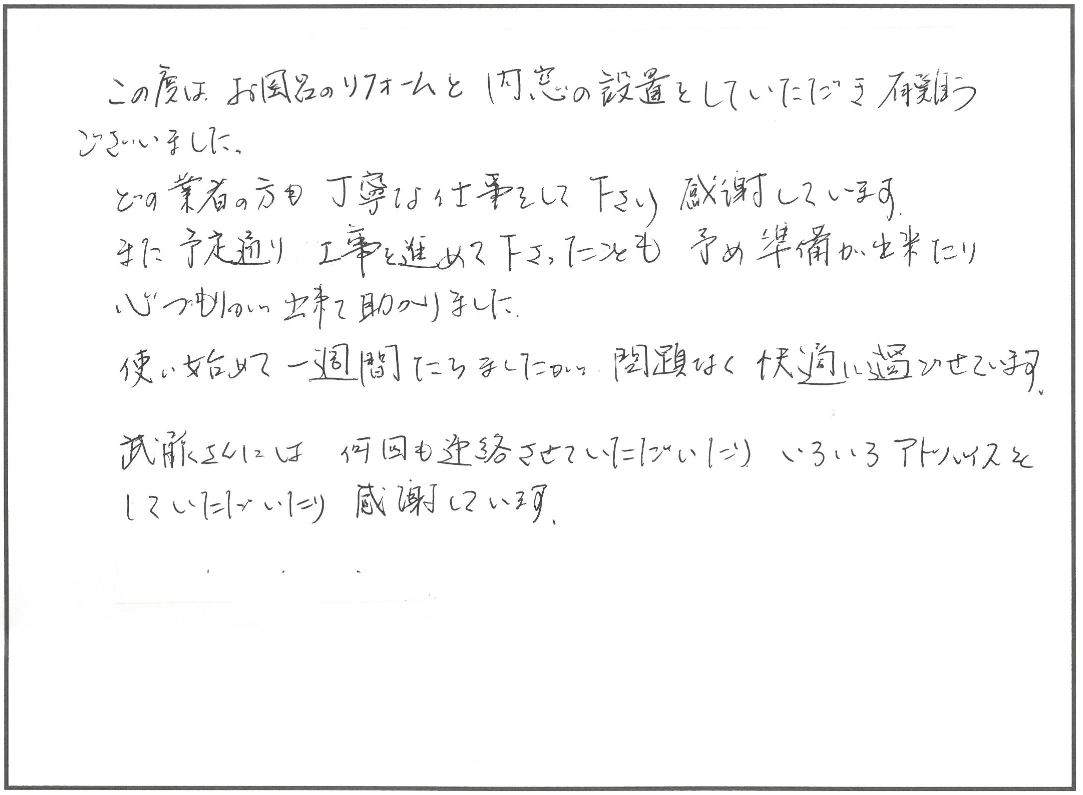 この度は お風呂のリフォームと 内窓の設置をしていただき 有難う
ございました。
どの業者の方も 丁寧な仕事をして下さり 感謝しています。
また予定通り 工事を進めて下さったことも 予め準備が出来たり
心づもりが出来て助かりました。
使い始めて一週間たちましたが、問題なく快適に過ごせています。
武藤さんには 何回も連絡させていただいたり いろいろアドバイスを
していただいたり 感謝しています。